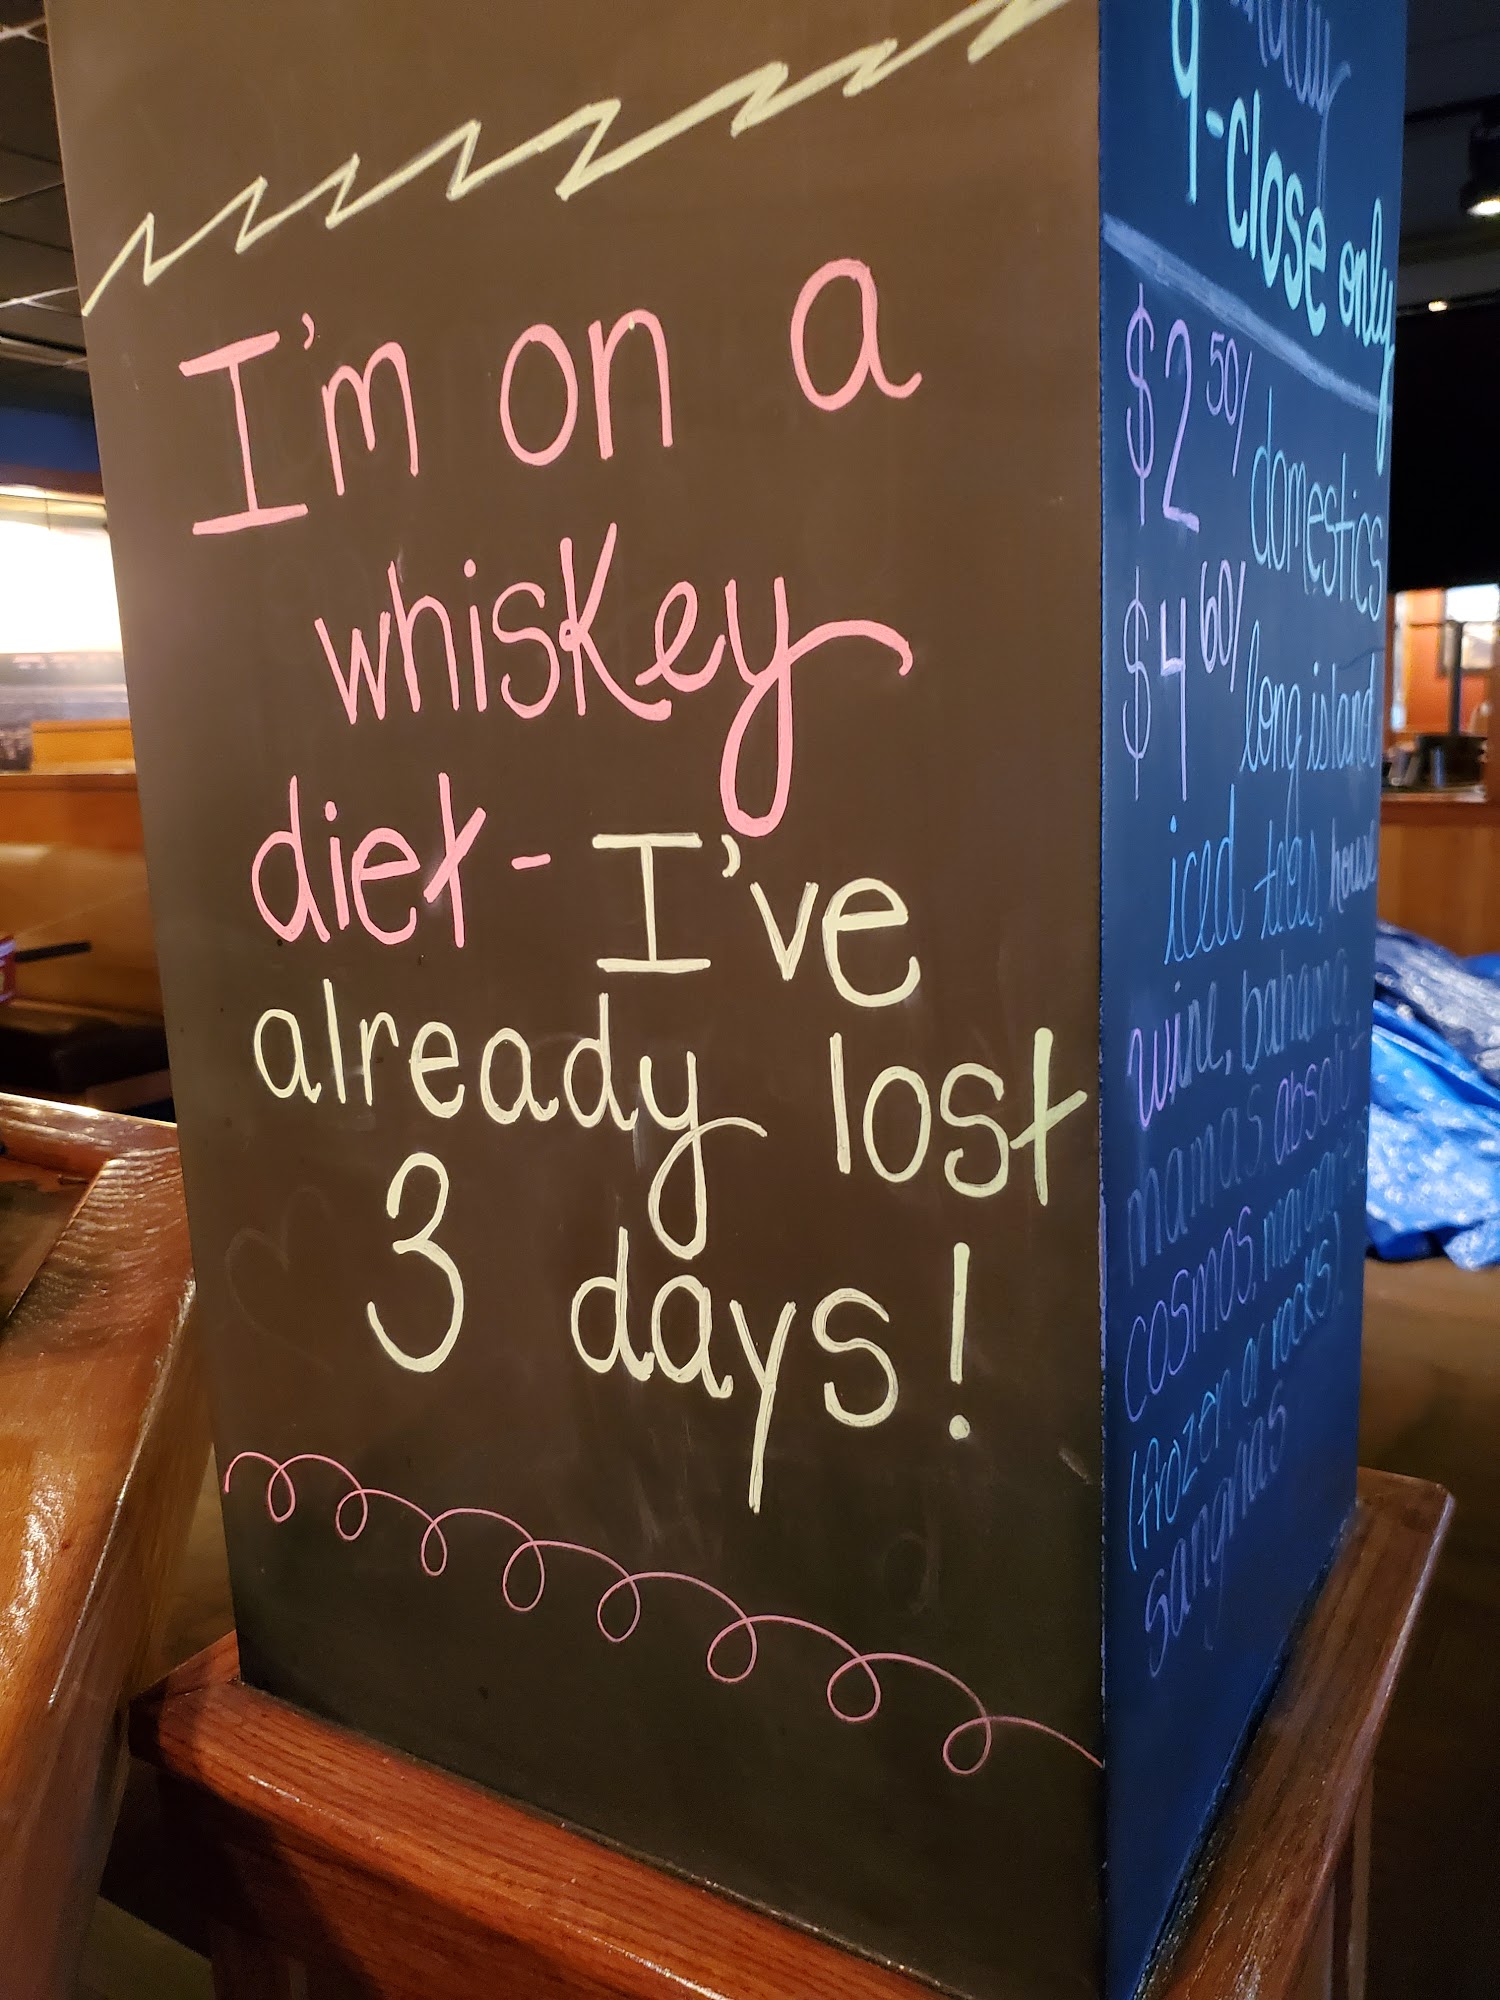 I'm on a
whiskey
diet - I've
already lost
3 days!
9-close only
$2 50/ domestics
$4 60/ long island
iced teas, house
wine, bahama
mamas, absolut
cosmos,
(frozen or rocks),
sangrias